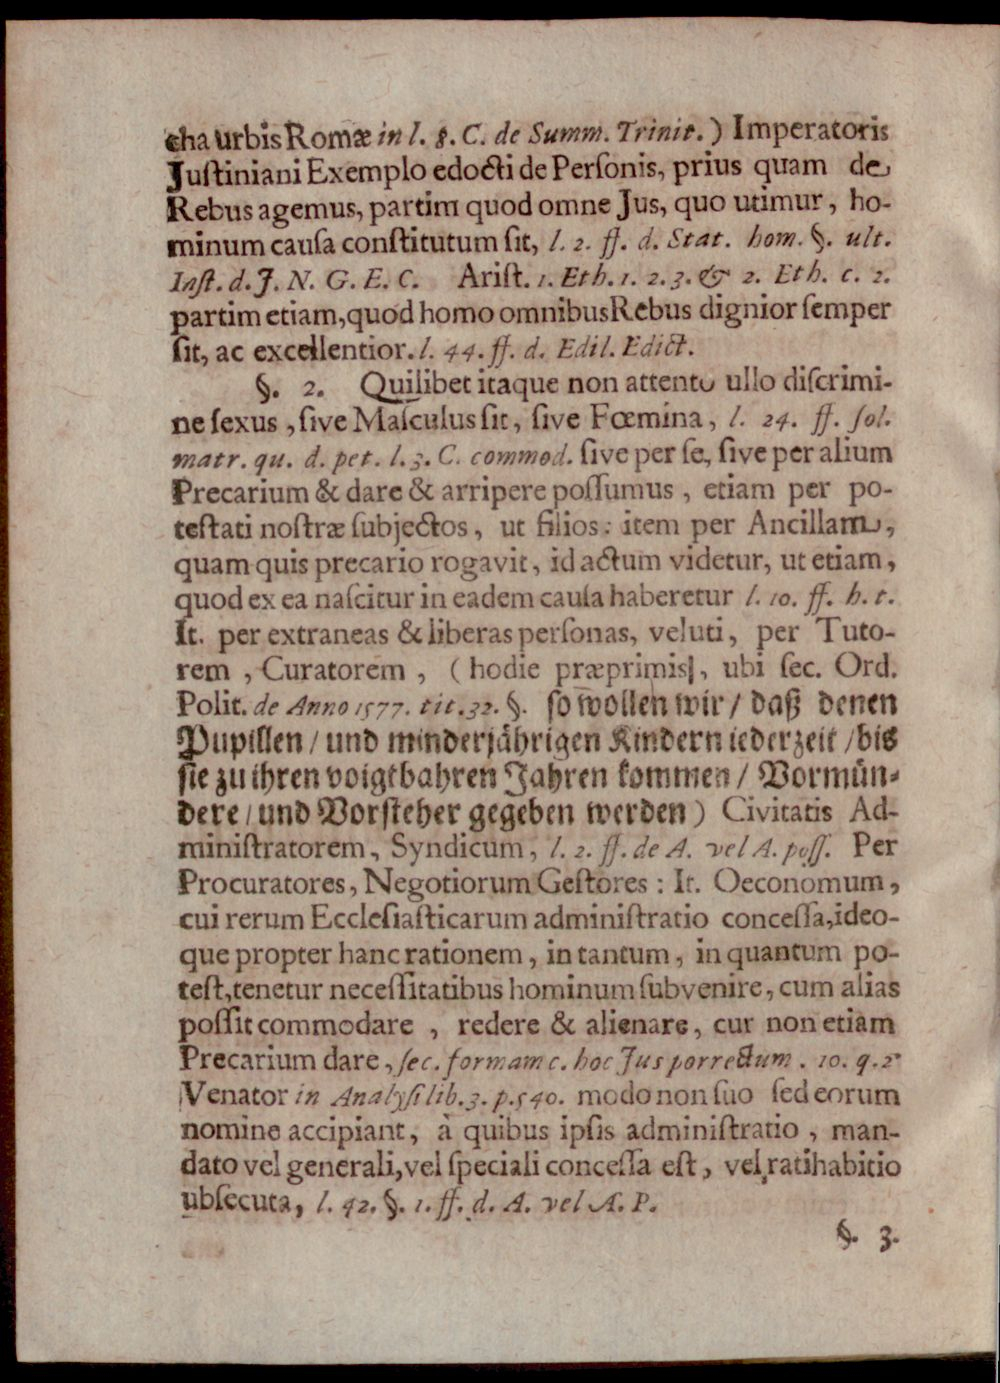 cha urbis Romæ in l. 8. C. de Summ. Trinit.) Imperatoris
Juſtiniani Exemplo edocti de Perſonis, prius quam de
Rebus agemus, partim quod omne Jus, quo utimur, ho-
minum cauſa conſtitutum ſit, l. 2. ff. d. Stat. hom. §. ult.
Inſt. d. J. N. G. E. C. Ariſt. 1. Eth. 1. 2. 3. & 2. Eth. c. 2.
partim etiam, quod homo omnibus Rebus dignior ſemper
ſit, ac excellentior. l. 44. ff. d. Edil. Edict.
§. 2. Quilibet itaque non attento ullo diſcrimi-
ne ſexus, ſive Maſculus ſit, ſive Fœmina, l. 24. ff. ſol.
matr. qu. d. pet. l. 3. C. commod. ſive per ſe, ſive per alium
Precarium & dare & arripere poſſumus, etiam per po-
teſtati noſtræ ſubjectos, ut filios: item per Ancillam,
quam quis precario rogavit, id actum videtur, ut etiam,
quod ex ea naſcitur in eadem cauſa haberetur l. 10. ff. h. t.
It. per extraneas & liberas perſonas, veluti, per Tuto-
rem, Curatorem, (hodie præprimis, ubi ſec. Ord.
Polit. de Anno 1577. tit. 32. §. ſo wollen wir / daß denen
Pupillen / und minderjährigen Kindern iederzeit / bis
ſie zu ihren voigtbahren Jahren kommen / Vormün-
dere / und Vorſteher gegeben werden) Civitatis Ad-
miniſtratorem, Syndicum, l. 2. ff. de A. vel A. poſſ. Per
Procuratores, Negotiorum Geſtores: It. Oeconomum,
cui rerum Eccleſiaſticarum adminiſtratio conceſſa, ideo-
que propter hanc rationem, in tantum, in quantum po-
teſt, tenetur neceſſitatibus hominum ſubvenire, cum alias
poſſit commodare, redere & alienare, cur non etiam
Precarium dare, ſec. formam c. hoc Jus porrectum. 10. q. 2
Venator in Analyſi lib. 3. p. 540. modo non ſuo ſed eorum
nomine accipiant, à quibus ipſis adminiſtratio, man-
dato vel generali, vel ſpeciali conceſſa eſt, vel ratihabitio
ubſecuta, l. 42. §. 1. ff. d. A. vel A. P.
§. 3.